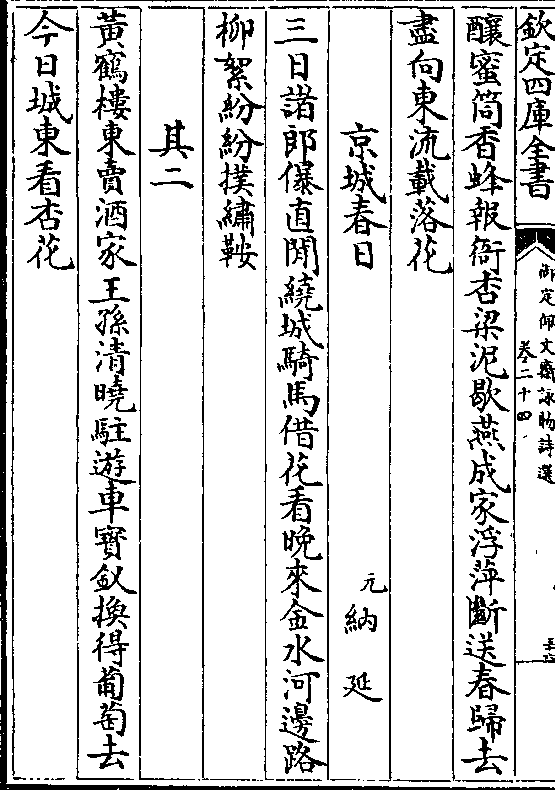 欽定四庫全書
御定佩文齋詠物詩選
卷二十四
釀蜜筒香蜂報衙杏梁泥歇燕成家浮萍斷送春歸去
盡向東流載落花
京城春日
元納延
三日諸郎儤直閒繞城騎馬借花看晚來金水河邊路
柳絮紛紛撲繡鞍
其二
黃鶴樓東賣酒家王孫清曉駐遊車寶釵換得葡萄去
今日城東看杏花